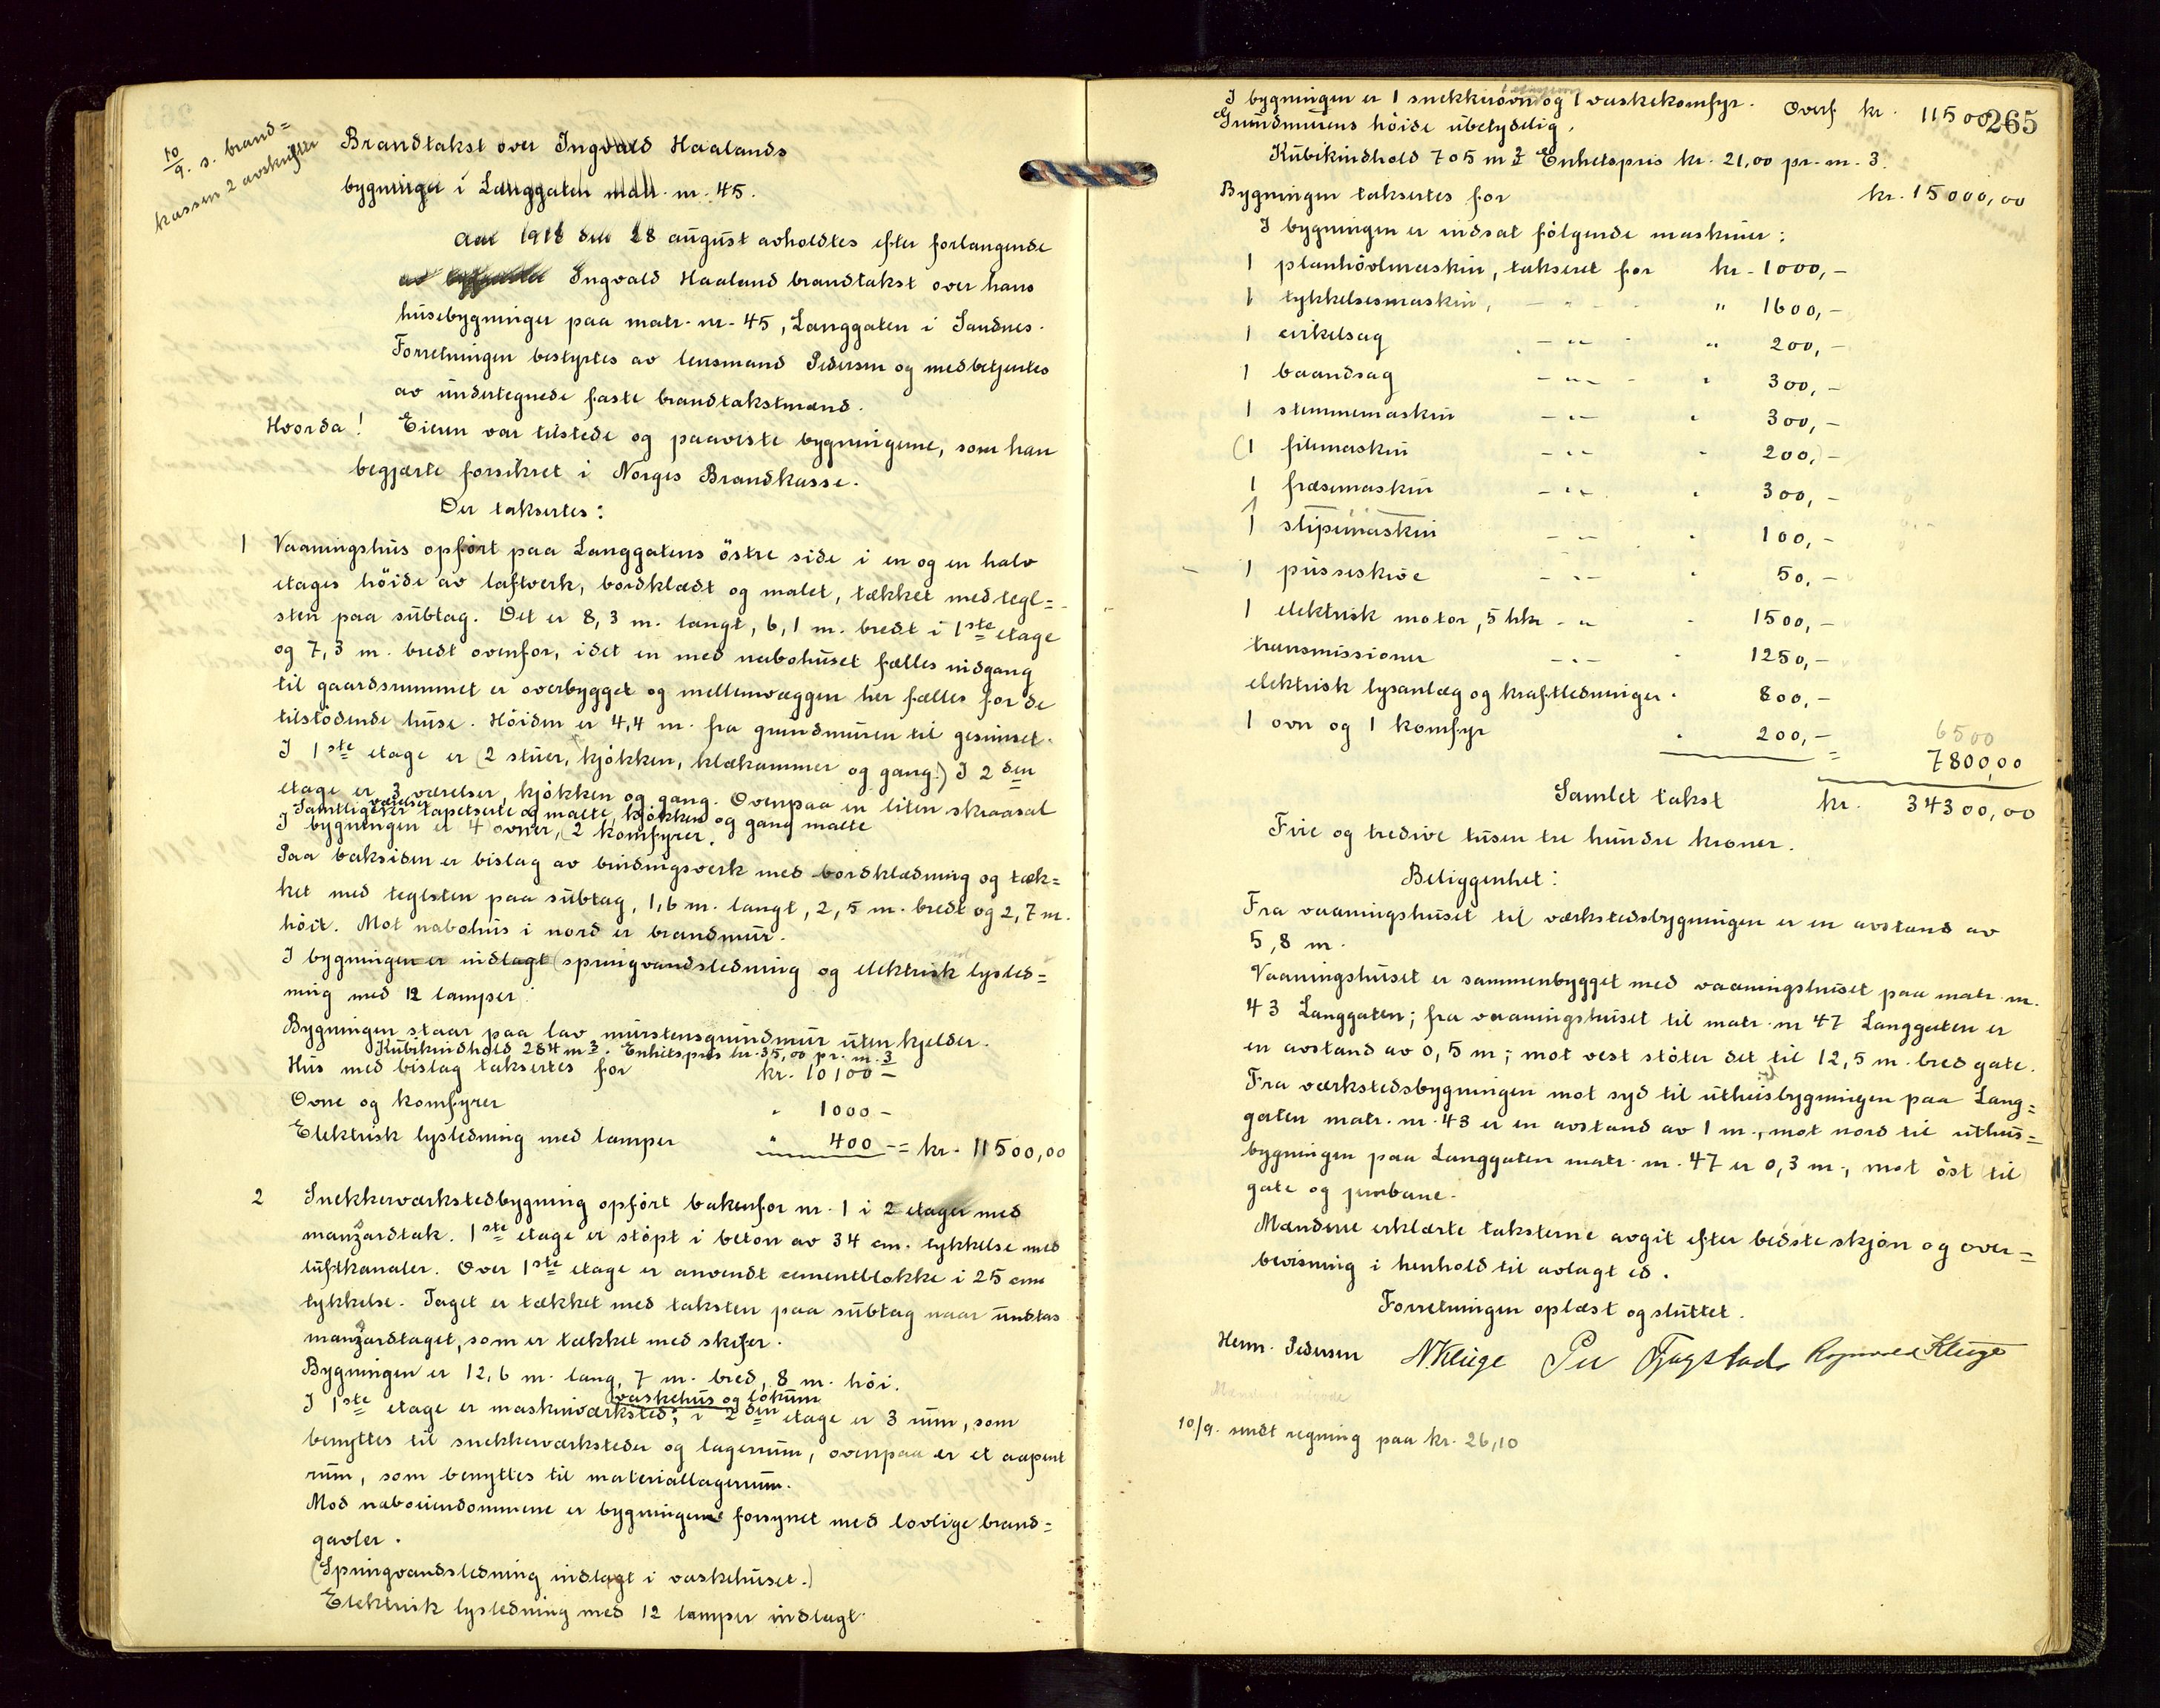 10/9. s. brand=
kassen 2 avskrifter
Brandtakst over Ingvald Haalands
bygninger i Langgaten matr. nr. 45.
Aar 1918 den 28 august avholdtes efter forlangende
av Ingvald Haaland brandtakst over hans
husebygninger paa matr. nr. 45, Langgaten i Sandnes.
Forretningen bestyrtes av lensmand Pedersen og medbetjentes
av undertegnede faste brandtakstmænd.
Hvorda! Eieren var tilstede og paaviste bygningerne, som han
begjærte forsikret i Norges Brandkasse.
Der taksertes:
1 Vaaningshus opført paa Langgatens östre side i en og en halv
etages höide av laftverk, bordklædt og malet, tækket med tegl=
sten paa subtag. Det er 8,3 m. langt, 6,1 m. bredt i 1ste etage
og 7,3 m. bredt ovenfor, idet en med nabohuset fælles nidgang
til gaardsrummet er overbygget og mellemvæggen her fælles for de
tilstödende huse. Höiden er 4,4 m. fra grundmuren til gesimset.
I 1ste etage er (2 stuer, kjökken, klækammer og gang.) I 2den
etage er 3 værelser, kjökken og gang. Ovenpaa en liten skraasal
Samtlige værelser er tapetserte og malte, kjökken og gang malte
I bygningen er 4 ovner, (2 komfyrer.
Paa baksiden er bislag av bindingsverk med bordklædning og tæk=
ket med teglsten paa subtag, 1,6 m. langt, 2,5 m. bredt og 2,7 m.
höit. Mot nabohus i nord er brandmur.
I bygningen er indlagt (springvandsledning og elektrisk lysled=
ning med 12 lamper.
Bygningen staar paa lav murstensgrundmur uten kjelder.
Kubikindhold 284 m3. Enhetspris kr. 35,00 pr. m. 3
Hus med bislag taksertes for kr. 10100 -
Ovne og komfyrer " 1000 -
Elektrisk lysledning med lamper " 400 - = kr. 11500,00
2 Snekkerværkstedbygning opfört bakenfor nr. 1 i 2 etager med
manzardtak. 1ste etage er stöpt i beton av 34 cm. tykkelse med
luftkanaler. Over 1ste etage er anvendt cementblokke i 25 cms
tykkelse. Taget er tækket med taksten paa subtag naar undtas
manzardtaget, som er tækket med skifer.
Bygningen er 12,6 m. lang, 7 m. bred, 8 m. höi.
I 1ste etage er maskinværksted, vaskehus og lokum; i 2den etage er 3 rum, som
benyttes til snekkerværksteder og lagerrum, ovenpaa er et aapent
rum, som benyttes til materiallagerrum.
Mod naboeiendommene er bygningerne forsynet med lovlige brand=
gavler.
(Springvandsledning indlagt i vaskehuset.)
Elektrisk lysledning med 12 lamper indlagt.
265
I bygningen er 1 snekkerovn og 1 vaskekomfyr. Overf kr. 11500
Grundmurens höide ubetydelig.
Kubikindhold 705 m3 Enhetspris kr. 21,00 pr. m. 3.
Bygningen taksertes for kr. 15000,00
I bygningen er indsat fölgende maskiner:
1 planhövlmaskin, takseret for kr. 1000,-
1 tykkelsesmaskin, - " - " 1600,-
1 cirkelsag - " - " 200,-
1 baandsag - " - " 300,-
1 stemmemaskin - " - " 300,-
(1 filemaskin - " - " 200,) -
1 fræsemaskin - " - " 300,-
1 stipemaskin - " - " 100,-
1 pusseskive - " - " 50,-
1 elektrisk motor, 5 hkr - " " 1500,-
transmissioner - " - " 1250,-
elektrisk lysanlæg og kraftledninger " 800,-
1 ovn og 1 komfyr " 200,-
6500
= 7800,00
Samlet takst kr. 34300,00
Fire og tredive tusen tre hundre kroner.
Beliggenhet:
Fra vaaningshuset til værkstedsbygningen er en avstand av
5,8 m.
Vaaningshuset er sammenbygget med vaaningshuset paa matr. nr.
43 Langgaten; fra vaaningshuset til matr. nr 47 Langgaten er
en avstand av 0,5 m; mot vest stöter det til 12,5 m. bred gate.
Fra værkstedsbygningen mot syd til uthusbygningen paa Lang=
gaten matr. nr. 43 er en avstand av 1 m., mot nord til uthus=
bygningen paa Langgaten matr. nr. 47 er 0,3 m., mot öst til
gate og jernbane.
Mændene erklærte taksterne avgit efter bedste skjön og over=
bevisning i henhold til avlagt ed.
Forretningen oplæst og sluttet.
Herm. Pedersen N. Kluge Per Fjogstad Rognvald Kluge
10/9. sendt regning paa kr. 26,10